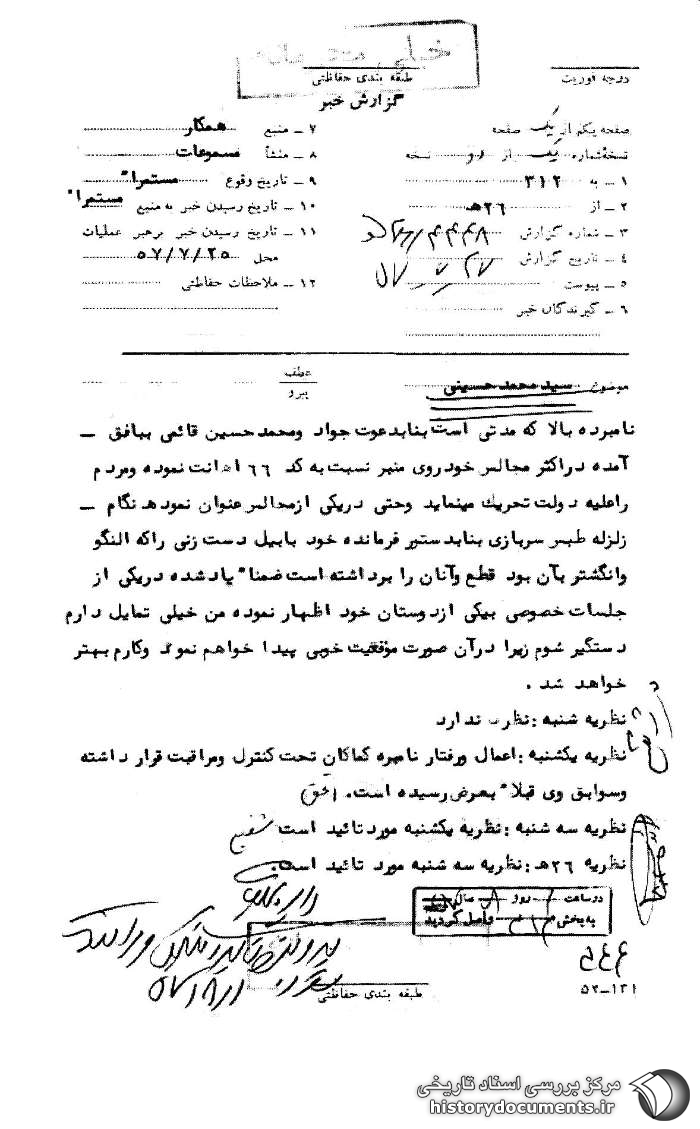 خیلی محرمانه
درجه فوریت
طبقه بندی حفاظتی
گزارش خبر
صفحه یکم از یک صفحه
نسخه شماره یک از دو نسخه
۱ – به ۳۱۲
۲ – از ۲۶ﻫ
۳ – شماره گزارش
۴ – تاریخ گزارش
۵ – پیوست
۶ – گیرندگان خبر
۷ – منبع همکار
۸ – منشأ مسموعات
۹ – تاریخ وقوع مستمرا"
۱۰ – تاریخ رسیدن خبر به منبع مستمرا"
۱۱ – تاریخ رسیدن خبر برهبر عملیات
محل ۵۷/۷/۲۵
۱۲ – ملاحظات حفاظتی
موضوع سید محمد حسینی
عطف
پیرو
نامبرده بالا که مدتی است بنابدعوت جواد ومحمدحسین قائمی ببافق –
آمده دراکثر مجالس خودروی منبر نسبت به کد ۶۶ اهانت نموده ومردم
راعلیه دولت تحریك مینماید وحتی دریکی ازمجالس عنوان نموده‌نگام –
زلزله طبس سربازی بنابدستور فرمانده خود بابیل دست زنی راکه النگو
وانگشتر بآن بود قطع وآنان را برداشته است ضمنا" یادشده دریکی از
جلسات خصوصی بیکی ازدوستان خود اظهار نموده من خیلی تمایل دارم
دستگیر شوم زیرا درآن صورت مؤقعیت خوبی پیدا خواهم نمود وکارم بهتر
خواهد شد .
نظریه شنبه : نظری ندارد
نظریه یکشنبه : اعمال ورفتار نامبره کماکان تحت کنترل ومراقبت قرار داشته
وسوابق وی قبلا" بعرض رسیده است.
نظریه سه شنبه : نظریه یکشنبه مورد تائید است شفیع
نظریه ۲۶ﻫ : نظریه سه شنبه مورد تائید است.
در ساعت روز سال
به بخش ۳۱۲ واصل گردید
طبقه بندی حفاظتی
۵۲–۱۳۱
مرکز بررسی اسناد تاریخی
historydocuments.ir